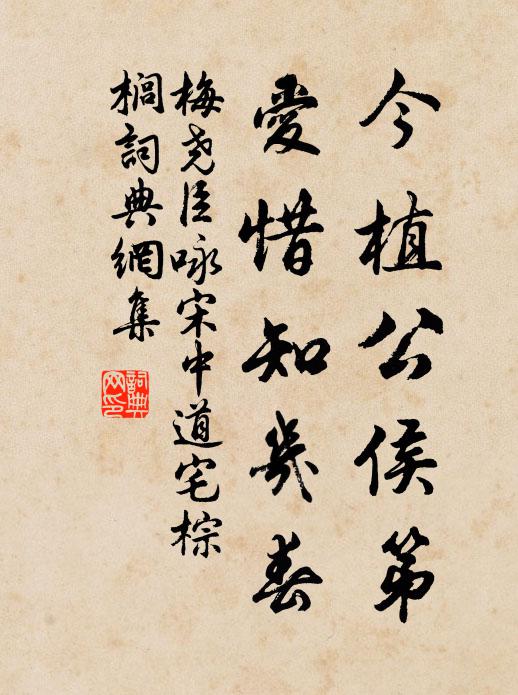 今植公侯第
愛惜知幾春
梅堯臣咏宋中道宅棕
櫚詞典網集
詞典
网印